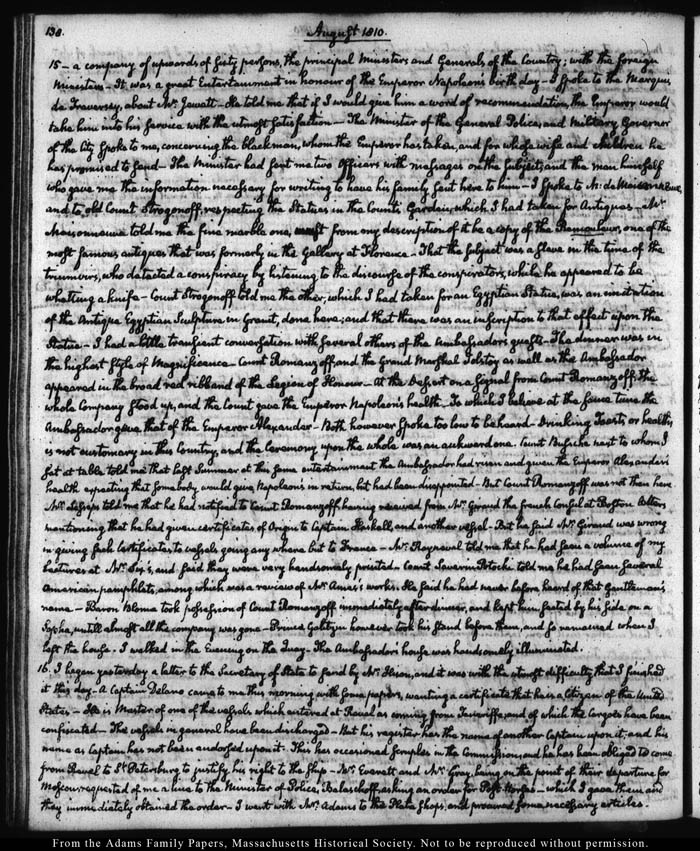 138. August 1810.
15 — a company of upwards of sixty persons, the principal Ministers and Generals of the Country; with the foreign
Ministers — It was a great Entertainment in honour of the Emperor Napoleon's birth day — I spoke to the Marquis
de Traversey, about Mr. Jewett — He told me that if I would give him a word of recommendation, the Emperor would
take him into his service with the utmost satisfaction — The Minister of the General Police, and Military Governor
of the City spoke to me, concerning the black man, whom the Emperor has taken, and for whose wife and children he
has promised to send — The Minister had sent me two Officers with messages on the subject, and the man himself
who gave me the information necessary for writing to have his family sent here to him — I spoke to Mr: de
and to old Count Strogonoff, respecting the Statues in the Count's Garden, which I had taken for Antiques — Mr.
told me the fine marble one, must from my description of it be a copy of the one of the
most famous antiques that was formerly in the Gallery at Florence — That the subject was a slave in the time of the
triumvirs, who detected a conspiracy by listening to the discourse of the conspirators, while he appeared to be
whetting a knife — Count Strogonoff told me the other, which I had taken for an Egyptian Statue, was an imitation
of the Antique Egyptian Sculpture in Granit, done here; and that there was an inscription to that effect upon the
Statue — I had a little transient conversation with several others of the Ambassador's guests — The dinner was in
the highest style of Magnificence — Count Romanzoff, and the Grand Marshal Tolstoy as well as the Ambassador
appeared in the broad red ribband of the Legion of Honour — At the Dessert on a signal from Count Romanzoff, the
whole Company stood up, and the Count gave the Emperor Napoleon's health. To which I believe at the same time the
Ambassador gave that of the Emperor Alexander — Both however spoke too low to be heard — Drinking Toasts, or healths,
is not customary in this Country, and the Ceremony upon the whole was an awkward one. Count Bussche next to whom I
sat at table told me that last Summer at this same entertainment the Ambassador had risen and given the Emperor Alexander's
health expecting that somebody would give Napoleon's in return, but had been disappointed — But Count Romanzoff was not then here.
Mr. Lesseps told me that he had notified to Count Romanzoff having received from Mr. Giraud the french Consul at Boston letters
mentioning that he had given certificates of Origin to Captain Haskell, and another vessel — But he said Mr. Giraud was wrong
in giving such Certificates, to vessels going any where but to France — Mr. Rayneval told me that he had seen a volume of my
Lectures at Mr. Six's, and said they were very handsomely printed — Count Severin Potocki told me he had seen several
American pamphlets, among which was a review of Mr. Ames's works. He said he had never before heard of that Gentleman's
name — Baron Blome took possession of Count Romanzoff immediately after dinner, and kept him seated by his side on a
Sopha, untill almost all the company was gone — Prince Galitzin however took his stand before them, and so remained when I
left the house. I walked in the Evening on the Quay — The Ambassador's house was handsomely illuminated.
16. I began yesterday a letter to the Secretary of State to send by Mr. and it was with the utmost difficulty that I finished
it this day — A Captain Delano came to me this morning with some papers, wanting a certificate that he is a Citizen of the United
States — He is Master of one of the vessels which entered at Revel as coming from Teneriffe, and of which the Cargoes have been
confiscated — The vessels in general have been discharged — But his register has the name of another Captain upon it; and his
name as Captain has not been endorsed upon it. This has occasioned scruples in the Commission, and he has been obliged to come
from Revel to St. Petersburg to justify his right to the Ship — Mr. Everett and Mr. Gray, being on the point of their departure for
Moscow, requested of me a line to the Minister of Police, Balaschoff, asking an order for Post-Horses — which I gave them and
they immediately obtained the order — I went with Mrs. Adams to the Plate shops, and procured some necessary articles.
From the Adams Family Papers, Massachusetts Historical Society. Not to be reproduced without permission.